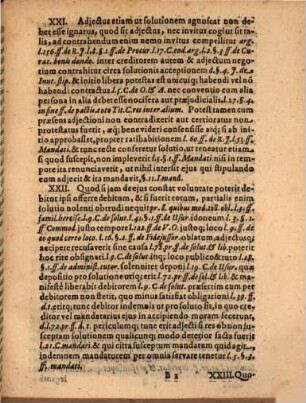 XXI. Adjectus etiam ut solutionem agnoscat non de-
bet esse ignarus, quod sit adjectus, nec invitus cogitur sit ta-
lia, ad contrahendum enim nemo invitus compellitur arg.
l. 156. ff. de R. J. l. 8. §. 1. ff. de Procur. l. 17. C. eod. arg. l. 5. §. 3. ff. de Cu-
rat. bonis dando. inter creditorem autem & adjectum nego-
tium contrahitur circa solutionis acceptionem §. 4. J. de
Inut. stip. & initio libera potestas est unicuiq; habendi vel nō
habendi contractus l. 5. C. de O. & A. nec conventio cum alia
persona in alia debet esse nocitera aut præjudicialis. l. 27. §. 4.
ff. de pactis. & toto Tit. C. res inter alium. Potest tamen cum
præsens adjectioni non contradixerit aut certioratus non
protestatus fuerit, æq; bene videri consensisse atq; si ab ini-
tio approbasset, propter ratihabitionem l. 60. ff. de R. J. l. 53. ff.
Mandati. & tunc recte conferetur solutio, ut teneatur etiam
si quod suscepit, non impleverit l. 5. §. 1. ff. Mandati nisi in tem-
pore ita renunciaverit, ut nihil interſit ejus qui stipulando
eum adjecit & ita mandavit. §. 11. J. mand.
XXII. Quod si jam de ejus constat voluntate poterit de-
bitor ipsi offerre debitum, & fuerit totum, partialis enim
solutio nolenti obtrudi nequit pr. J. quibus mod. toll. obl. l. 3.
famil. hercisc. l. 9. C. de solut. l. 41. §. 1. ff. de Usur. idoneum l. 3. §. 1.
ff. Commod. justo tempore l. 122. ff. de V. O. justoq; loco l. 9. ff. de
eo quod certo loco. l. 16. §. 1. ff. de Fidejussor. oblatum, adjectusq;
accipere recusaverit sine causa l. 73. pr. ff. de solut. & lib. poterit
hoc rite obsignari. l. 9. C. de solut. inq; loco publico & tuto l. 28.
§. 1. ff. de administ. tutor. solenniter deponi l. 19. C. de Usur. quæ
depositio pro solutione erit; ergo est l. 7. pr. ff. de sol. & lib. & ma-
nifeste liberabit debitorem d. l. 9. C. præsertim cum per
debitorem non stetit, quo minus satisfiat obligationi l. 39. ff.
d. t. erit q; tunc debitor indemnis ut pro soluto sit, in quo credi-
tor vel mandatarius ejus in accipiendo moram fecerunt
d. l. 72. pr. ff. d. t. periculumq; tunc erit adjecti si res obnium
susceptam solutionem qualicunq; modo deterior facta fuerit
l. 21. C. mandati. & qui citra susceptum mandatum quid agit
indemnem mandatorem per omnia servare tenetur l. 5. §. 1.
ff. mandati.
B 2
XXIII. Quo-